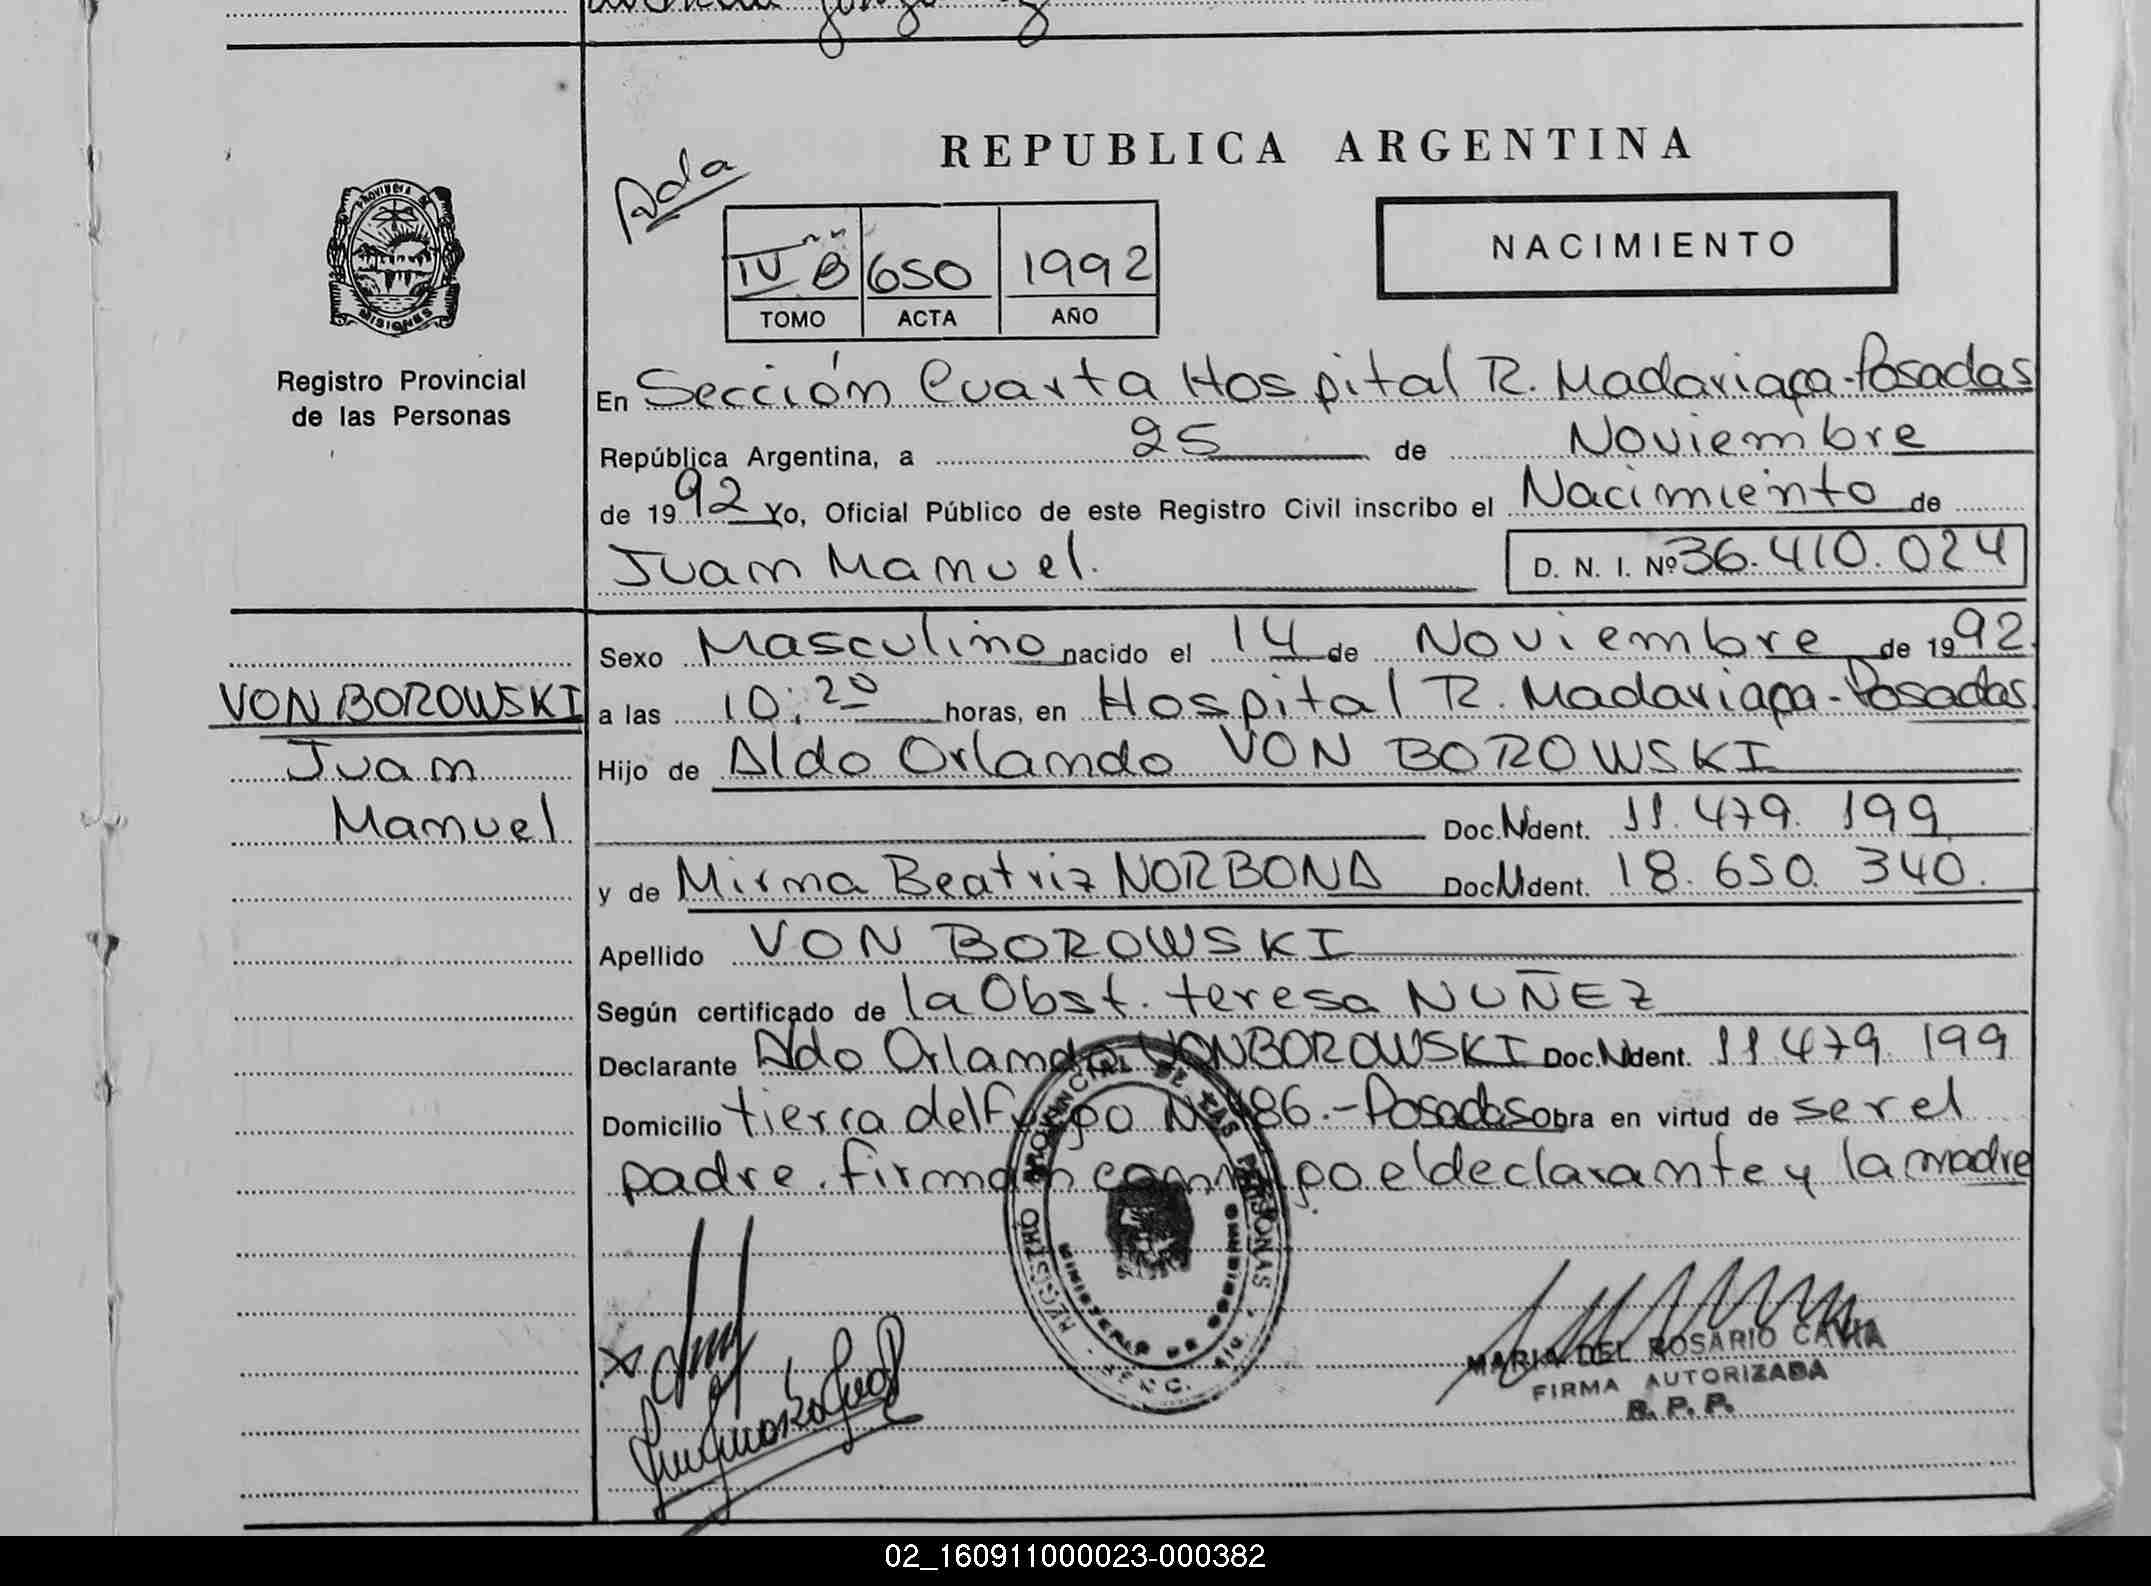 REPUBLICA ARGENTINA
Ada
NACIMIENTO
IV B 650 1992
TOMO ACTA AÑO
PROVINCIA DE
MISIONES
Registro Provincial
de las Personas
En Sección Cuarta Hospital R. Madariaga-Posadas
República Argentina, a 25 de Noviembre
de 1992 Yo, Oficial Público de este Registro Civil inscribo el Nacimiento de
Juan Manuel. D. N. I. Nº 36.410.024
Sexo Masculino nacido el 14 de Noviembre de 1992.
VON BOROWSKI
a las 10:20 horas, en Hospital R. Madariaga-Posadas
Juan
Hijo de Aldo Orlando VON BOROWSKI
Manuel
Doc. Ident. 11.479.199
y de Mirna Beatriz NORBONA Doc. Ident. 18.650.340.
Apellido VON BOROWSKI
Según certificado de la Obst. teresa NUÑEZ
Declarante Aldo Orlando VON BOROWSKI Doc. Ident. 11.479.199
Domicilio tierra del Fuego Nº 486.-Posadas obra en virtud de ser el
padre. firman conmigo el declarante y la madre
REGISTRO PROVINCIAL DE LAS PERSONAS
MINISTERIO DE GOBIERNO
MARIA DEL ROSARIO CAVIA
FIRMA AUTORIZADA
R. P. P.
02_160911000023-000382